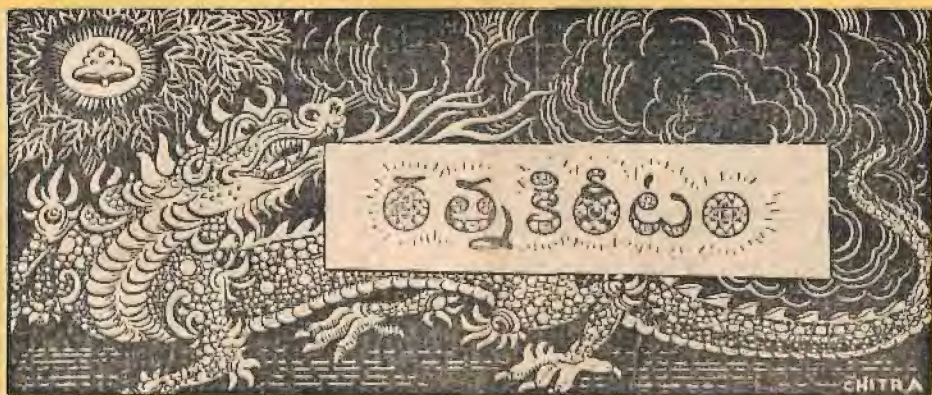 రత్నకిరీటం
CHITRA